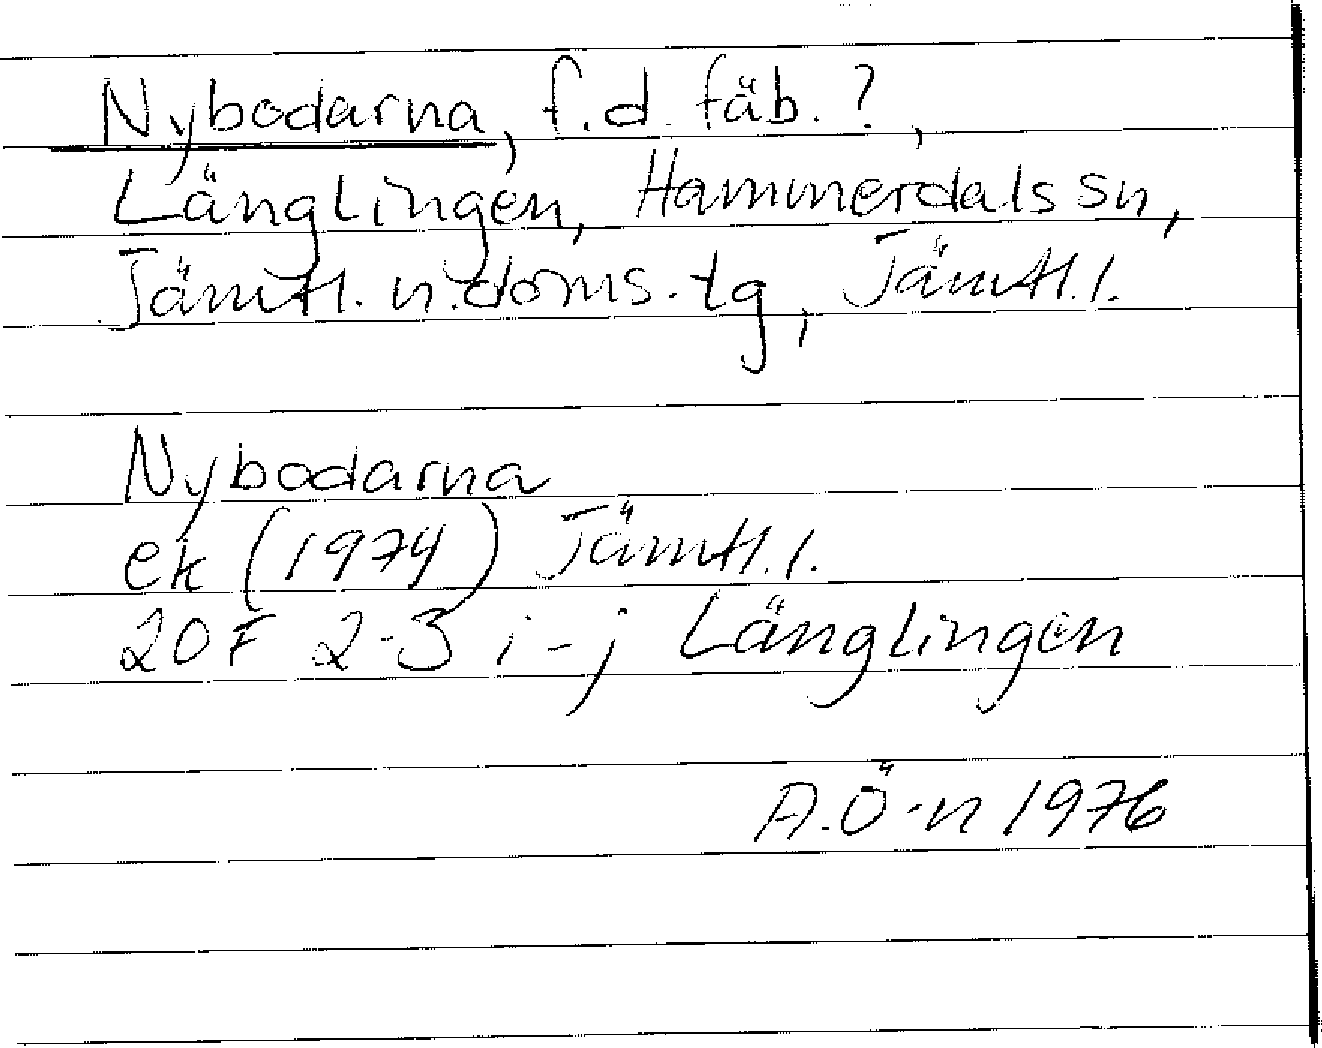 Nybodarna, f.d. fäb.?,
Länglingen, Hammerdals sn,
Jämtl. n. doms. tg, Jämtl. l.
Nybodarna
ek (1974) Jämtl. l.
20F 2-3 i-j Länglingen
A.Ö-n 1976